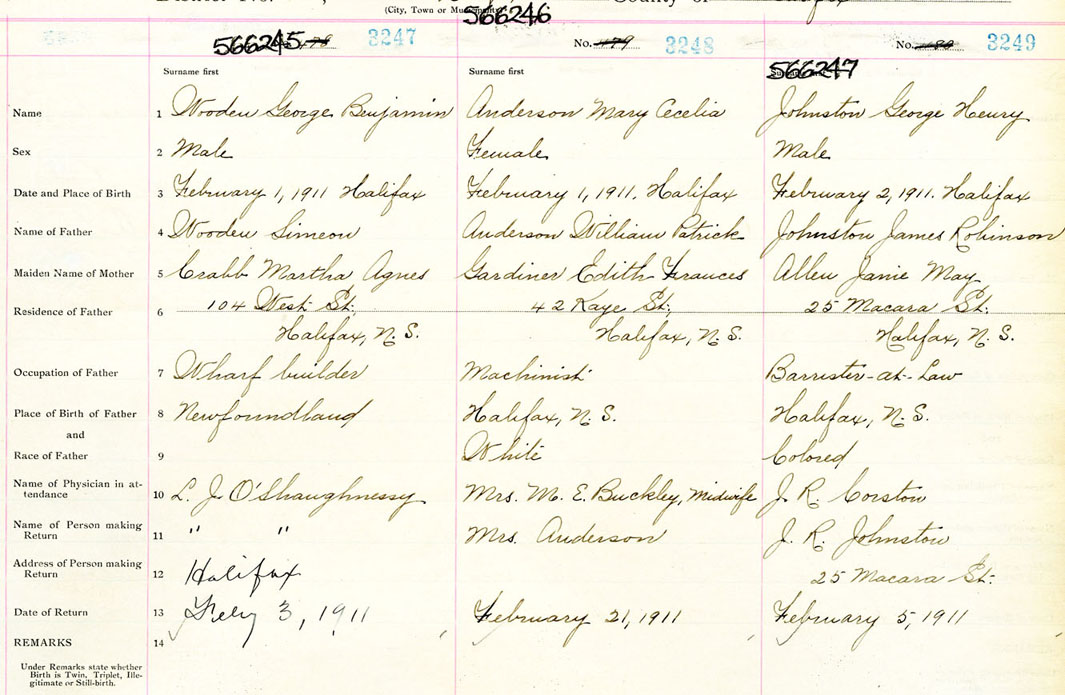 (City, Town or Municipality)
566245 3247
566246
No. 479 3248
No. 3249
566247
Surname first
Surname first
Name 1 Wooden George Benjamin Anderson Mary Cecelia Johnston George Henry
Sex 2 Male Female Male
Date and Place of Birth 3 February 1, 1911 Halifax February 1, 1911. Halifax February 2, 1911. Halifax
Name of Father 4 Wooden Simeon Anderson William Patrick Johnston James Robinson
Maiden Name of Mother 5 Crabb Martha Agnes Gardiner Edith Frances Allen Janie May
Residence of Father 6 104 West St., 42 Kaye St., 25 Macara St.
Halifax, N.S. Halifax, N.S. Halifax, N.S.
Occupation of Father 7 Wharf builder Machinist Barrister-at-Law
Place of Birth of Father 8 Newfoundland Halifax, N.S. Halifax, N.S.
and
Race of Father 9 White Colored
Name of Physician in at-
tendance 10 L. J. O'Shaughnessy Mrs. M. E. Buckley, Midwife J. R. Corston
Name of Person making
Return 11 " " Mrs. Anderson J. R. Johnston
Address of Person making
Return 12 Halifax 25 Macara St.
Date of Return 13 Feby 3, 1911 February 21, 1911 February 5, 1911
REMARKS 14
Under Remarks state whether
Birth is Twin, Triplet, Ille-
gitimate or Still-birth.